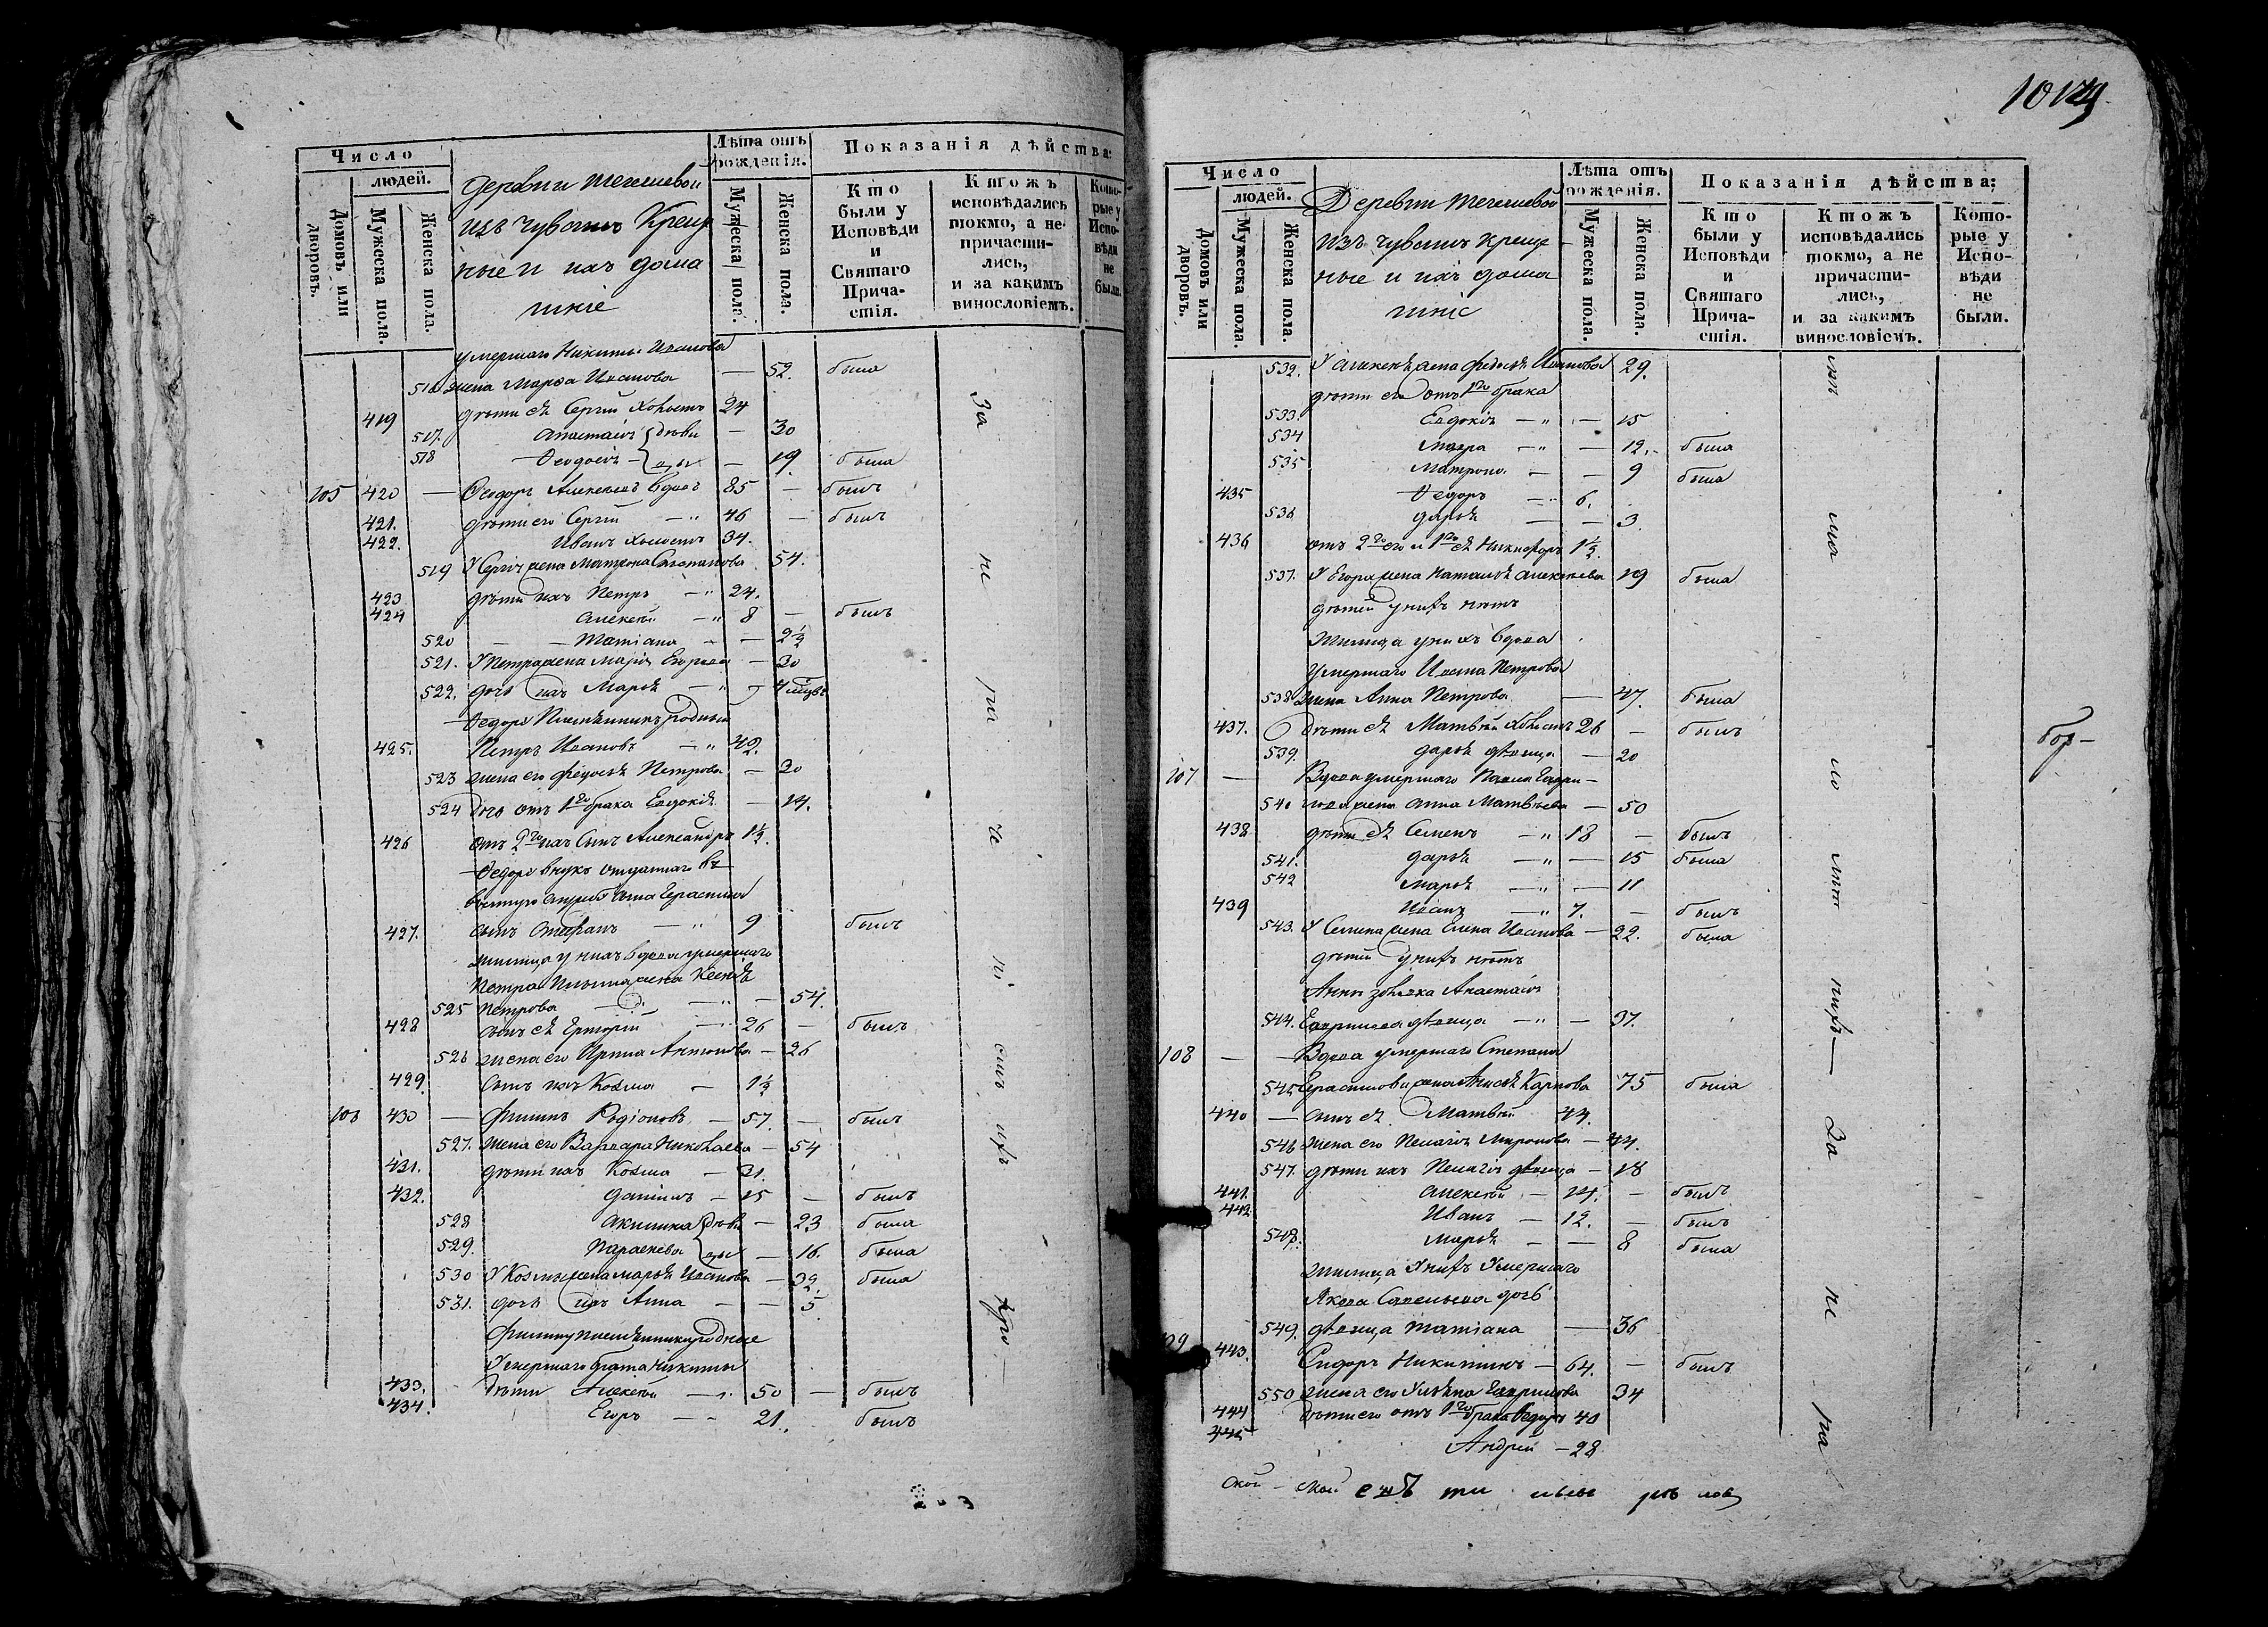 Число
людей.
Домовъ или дворовъ.
Мужеска пола.
Женска пола.
Деревни
изъ чувашъ Креще
ные и ихъ дома
шніе
Лѣта отъ рожденія.
Мужеска пола.
Женска пола.
Показанія дѣйства:
Кто были у Исповѣди и Святаго Причастія.
Ктожъ исповѣдались токмо, а не причастились, и за какимъ винословіемъ.
Которые у Исповѣди не были.
умершаго Никиты Иванова
516 жена Марѳа Иванова — 52. была
419 дѣти еѣ Сергій Холостъ 24
517. Анастасія дѣви — 30
518 Ѳеодосія цы — 19. была
105 420 — Ѳеодоръ Алексеевъ вдовъ 85 — былъ
421. дѣти его Сергій 46 — былъ
422. Иванъ Холостъ 34.
519 У Сергія жена Матрона Степанова 54.
423 дѣти ихъ Петръ 24.
424 Алексѣй 8 — былъ
520 — — Татіана — 2½
521. У Петра жена Марія Егорова — 30
522. дочь ихъ Марья 4
Ѳедора Племянникъ родный
425. Петръ Ивановъ 42.
523 жена его Ѳедосья Петрова — 20
524 дочь отъ 1го брака Евдокія — 14.
426 отъ 2го ихъ Сынъ Александръ 1½.
Ѳедора внукъ отданнаго въ
сына Герасима
427. сынъ Стефанъ 9 былъ
жилица у нихъ вдова умершаго
Петра жена Ксенія
525 Петрова — 54.
428 сынъ еѣ Григорій 26 — былъ
526 жена его Ирина Антонова — 26
429. сынъ ихъ Козма — 1½
106 430 — Филипъ Родіоновъ — 57. — былъ
527. жена его Варвара Николаева — 54
431. дѣти ихъ Козма — 31.
432. Даніилъ — 15 — былъ
528 Акилина дѣви — 23 была
529. Параскева цы — 16. была
530 У Козмы жена Марья Иванова — 32. была
531. дочь ихъ Анна — — 5.
Филипу племянники родные
Умершаго брата Никиты
433. дѣти Алексѣй 50 — былъ
434. Егоръ 21. былъ
За
не
Число
людей.
Домовъ или дворовъ.
Мужеска пола.
Женска пола.
Деревни
изъ чувашъ креще
ные и ихъ дома
шніе
Лѣта отъ рожденія.
Мужеска пола.
Женска пола.
Показанія дѣйства:
Кто были у Исповѣди и Святаго Причастія.
Ктожъ исповѣдались токмо, а не причастились, и за какимъ винословіемъ.
Которые у Исповѣди не были.
532. У Алексѣя жена Федосья Иванова 29.
дѣти его отъ 1го брака
533. Евдокія — 15
534 Мавра — 12. была
535 Матрона — 9 была
435 Ѳедоръ 6.
536 Дарья — 3.
436 отъ 2го его и 1го еѣ Никифоръ 1½.
537. У Егора жена Наталья Алексѣева 19 была
дѣтей у нихъ нѣтъ
Жилица у нихъ вдова
Умершаго Ивана Петрова
538 жена Анна Петрова — 47. была
437. дѣти еѣ Матвѣй Холостъ 26 — былъ
539. Дарья дѣвица — 20
107 — Вдова умершаго Павла Гаври-
540 лова жена Анна Матвѣева — 50
438 дѣти еѣ Семенъ 18 — былъ
541. Дарья — 15 была
542 Марья — 11
439 Иванъ 7. — былъ
543. У Семена жена Елена Иванова — 22. была
дѣтей у нихъ нѣтъ
Анны золовка Анастасія
544. Гаврилова дѣвица — 37.
108 — Вдова умершаго Степана
545 Герасимова жена Анисья Карпова 75 была
440 — сынъ еѣ Матвѣй 44.
546 жена его Пелагія Миронова — 44.
547. дѣти ихъ Пелагія дѣвица — 18
441. Алексѣй — 14. — былъ
442 Иванъ — 12. — былъ
548. Марья — — 8 была
жилица У нихъ Умершаго
Якова Савельева дочь
549. дѣвица Татіана — 36
109 443. Сидоръ Никитинъ — 64. — былъ
550 жена его Ульяна Гаврилова 34
444 дѣти его отъ 1го брака Ѳедоръ 40
445 Андрей — 28
нихъ
За
не
ра